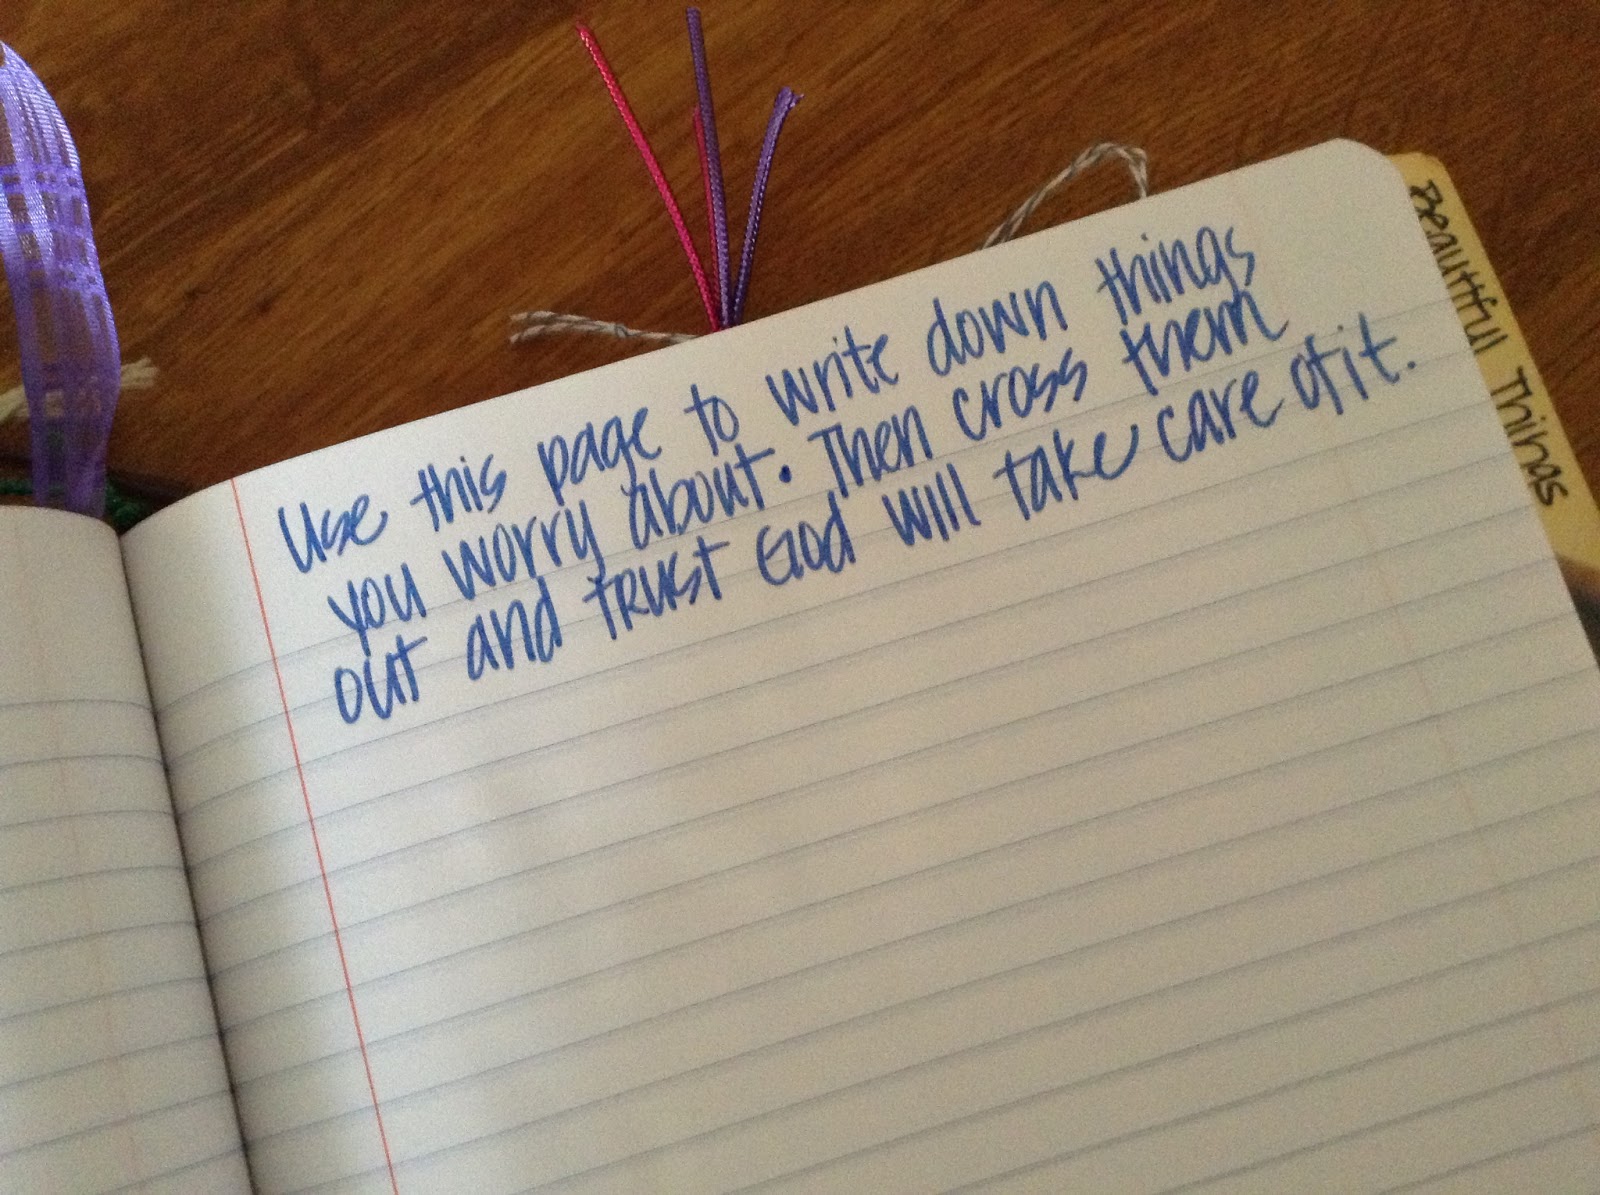 Use this page to write down things
you worry about. Then cross them
out and trust God will take care of it.
Beautiful Things